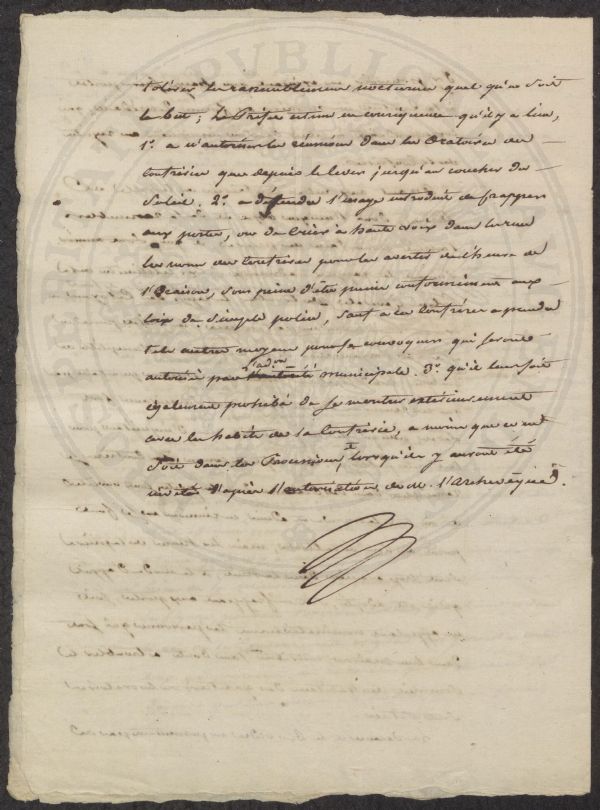 tolérer les rassemblemens nocturnes quel qu'en soit
le but; le Préfet estime en conséquence qu'il y a lieu,
1.° a n'autoriser la réunion dans les Oratoires des
Confréries que depuis le lever jusqu'au coucher du
Soleil. 2.° a défendre l'usage introduit de frapper
aux portes, ou de crier à haute voix dans les rues
les noms des Confrères pour les avertir de l'heure de
l'Oraison, sous peine d'être punis conformément aux
loix de simple police, sauf a ces Confrères a prendre
tels autres moyens pour se convoquer qui seront
autorisés par l'ad.on municipale. 3.° qu'il leur soit
également prohibé de se montrer extérieurement
avec les habits de la Confrérie, a moins que ce ne
Soit dans les Processions, lorsqu'ils y auront été
invités d'après l'autorisation de M. l'Archevêque.